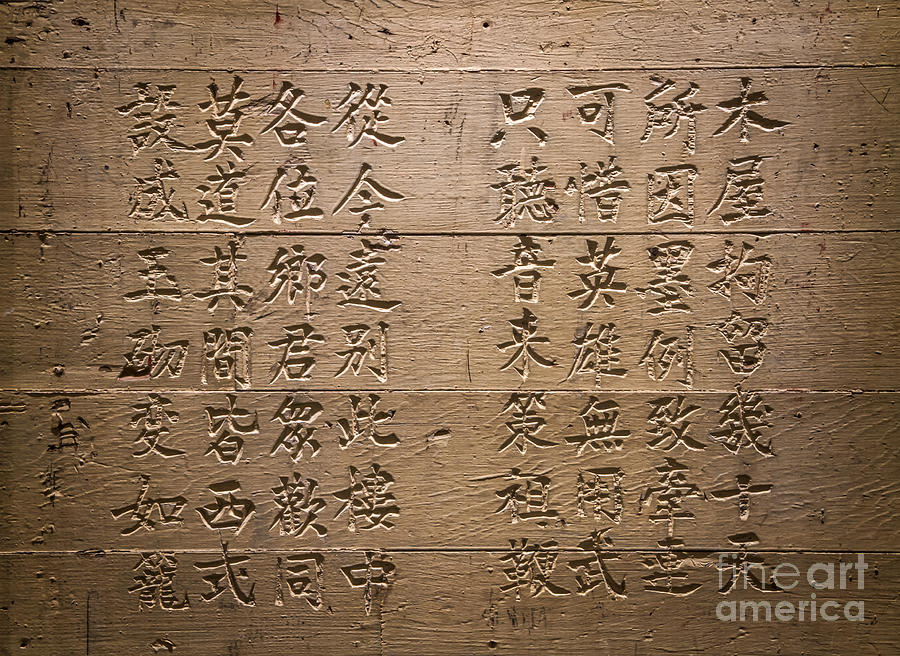 木屋拘留幾十天
所因墨例致牽連
可惜英雄無用武
只聽音來策祖鞭
從今遠別此樓中
各位鄉君眾歡同
莫道其間皆西式
設成玉砌變如籠
fine art
america